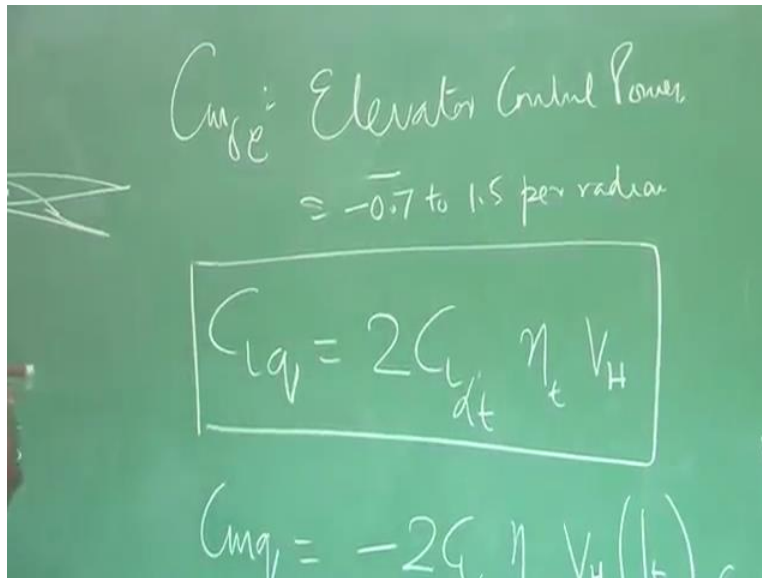 Cmδe : Elevator Control Power
= -0.7 to 1.5 per radian
CLq = 2CLαt ηt VH
Cmq = -2C η VH (lt)